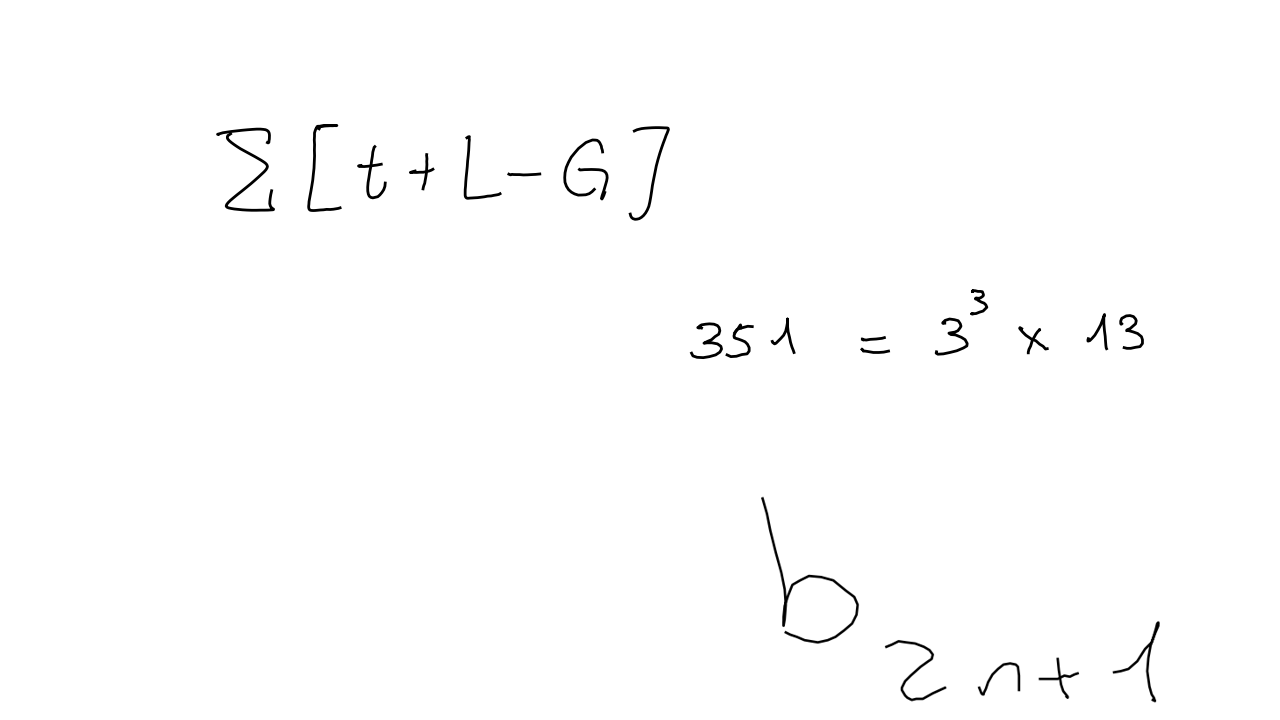 Σ[t+L-G]
351 = 3³ × 13
b₂ₙ₊₁